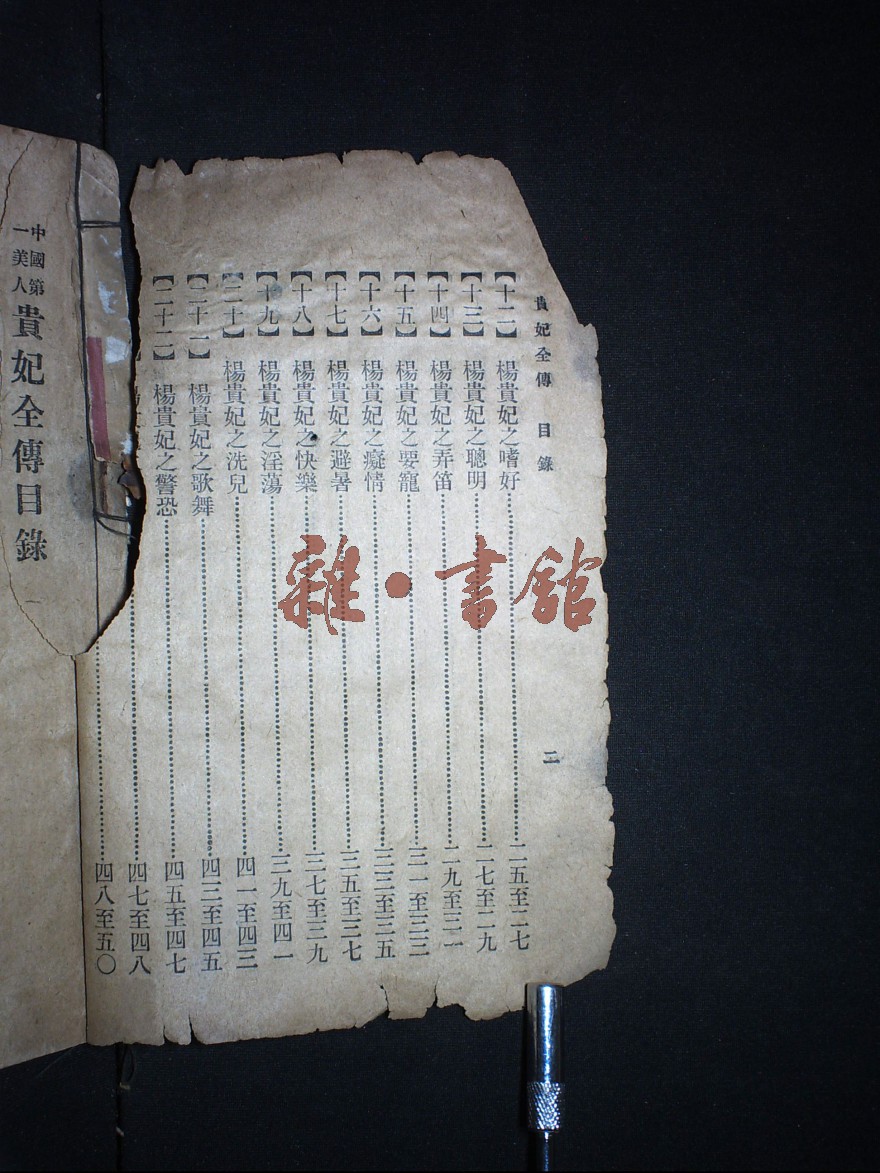 貴妃全傳　目錄　二
【十二】　楊貴妃之嗜好……二五至二七
【十三】　楊貴妃之聰明……二七至二九
【十四】　楊貴妃之弄笛……二九至三一
【十五】　楊貴妃之要寵……三一至三三
【十六】　楊貴妃之癡情……三三至三五
【十七】　楊貴妃之避暑……三五至三七
【十八】　楊貴妃之快樂……三七至三九
【十九】　楊貴妃之淫蕩……三九至四一
【二十】　楊貴妃之洗兒……四一至四三
【二十一】　楊貴妃之歌舞……四三至四五
【二十二】　楊貴妃之警恐……四五至四七
……四七至四八
……四八至五〇
中國第一美人 貴妃全傳目錄　一
雜·書館